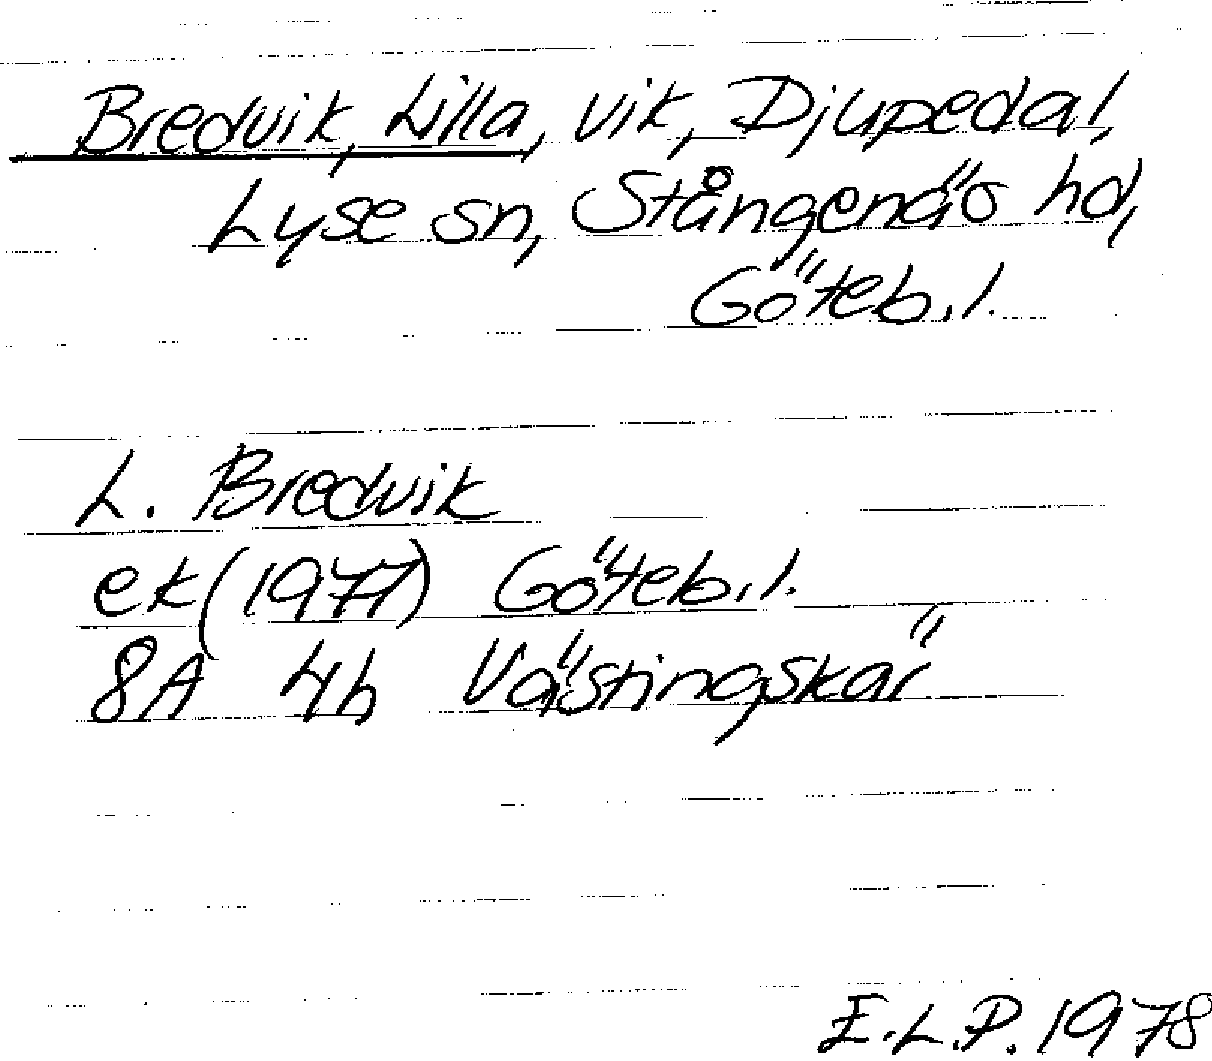 Bredvik, Lilla, vik, Djupedal,
Lyse sn, Stångenäs hd,
Göteb.l.
L. Bredvik
ek (1977) Göteb.l.
8A 4h Västingskär
E.L.P. 1978